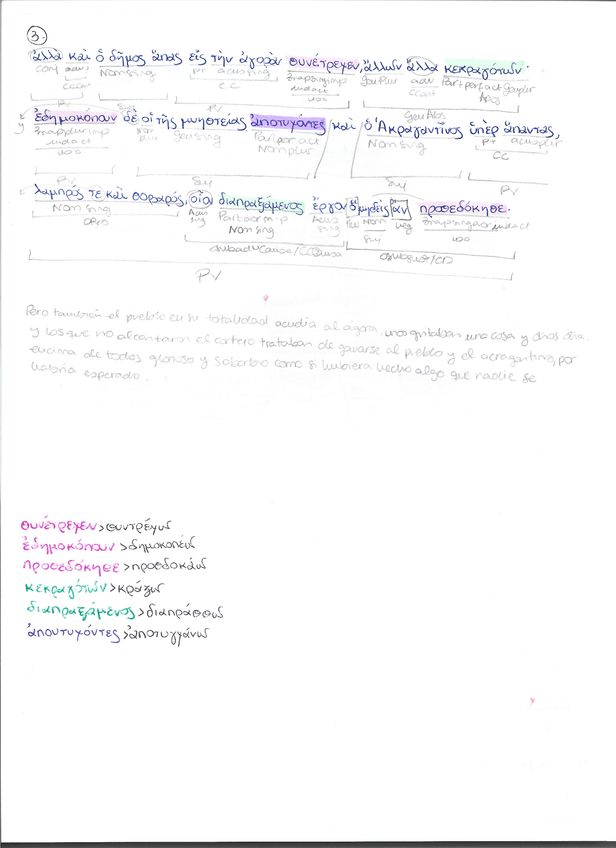 3.
ἀλλὰ καὶ ὁ δῆμος ἅπας εἰς τὴν ἀγορὰν συνέτρεχεν, ἄλλων ἄλλα κεκραγότων·
conj adv Nom sing pt acusing 3ªpsingimp indact gen plur adv Part perf act genplur
CCant Apos
PV Suj CC vos Gen Abs
PV
ἐδημοκόπουν δὲ οἱ τῆς μνηστείας ἀποτυχόντες καὶ ὁ Ἀκραγαντῖνος ὑπὲρ ἅπαντας,
3ªpplurimp indact Nom plur gensing Part aor act Nom plur Nom sing pt acusplur
vos CC
PV Suj Suj PV
λαμπρός τε καὶ σοβαρός, οἷον διαπραξάμενος ἔργον ὃ μηδεὶς ἂν προσεδόκησε.
Nom sing Acus sing Part aor mp Nom sing Acus sing Nom neg 3ªpsingaor indact
Suj vos
PV
Pero también el pueblo en su totalidad acudía al ágora, unos gritaban una cosa y otros otra
y los que no alcanzaron el cortejo trataban de ganarse al pueblo y el acragantino, por
encima de todos, glorioso y soberbio como si hubiera hecho algo que nadie se
habría esperado.
συνέτρεχεν > συντρέχω
ἐδημοκόπουν > δημοκοπέω
προσεδόκησε > προσδοκάω
κεκραγότων > κράζω
διαπραξάμενος > διαπράσσω
ἀπουτυχόντες > ἀποτυγχάνω